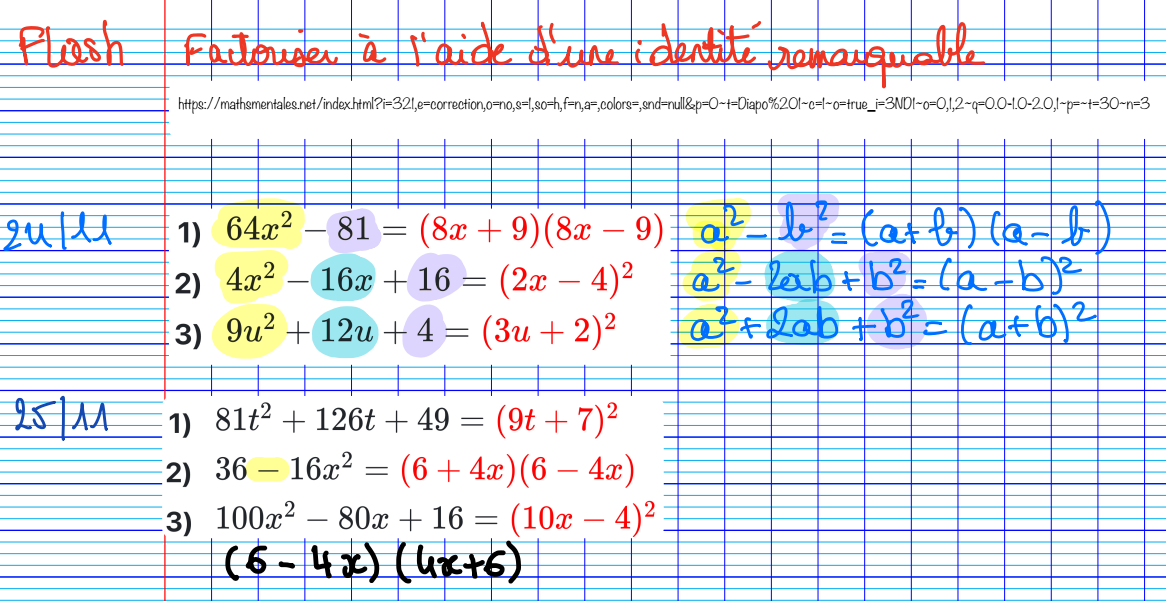 Flash Factoriser à l'aide d'une identité remarquable
https://mathsmentales.net/index.html?i=321,e=correction,o=no,s=1,so=h,f=n,a=,colors=,snd=null&p=0~t=Diapo%201~c=1~o=true_i=3ND1~o=0,1,2~q=0.0-1.0-2.0,1~p=~t=30~n=3
24/11 1) 64x² − 81 = (8x + 9)(8x − 9) a² - b² = (a+b)(a-b)
2) 4x² − 16x + 16 = (2x − 4)² a² - 2ab + b² = (a-b)²
3) 9u² + 12u + 4 = (3u + 2)² a² + 2ab + b² = (a+b)²
25/11 1) 81t² + 126t + 49 = (9t + 7)²
2) 36 − 16x² = (6 + 4x)(6 − 4x)
3) 100x² − 80x + 16 = (10x − 4)²
(6 - 4x) (4x+6)